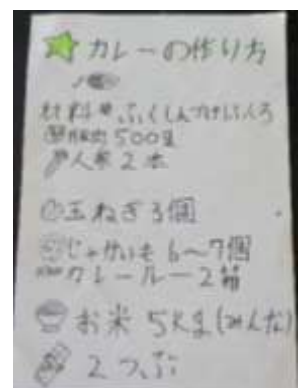 カレーの作り方
材料 ふくしんづけふくろ
豚肉 500g
人参 2本
玉ねぎ 3個
じゃがいも 6〜7個
カレールー 2箱
お米 5kg(みんな)
2つぶ